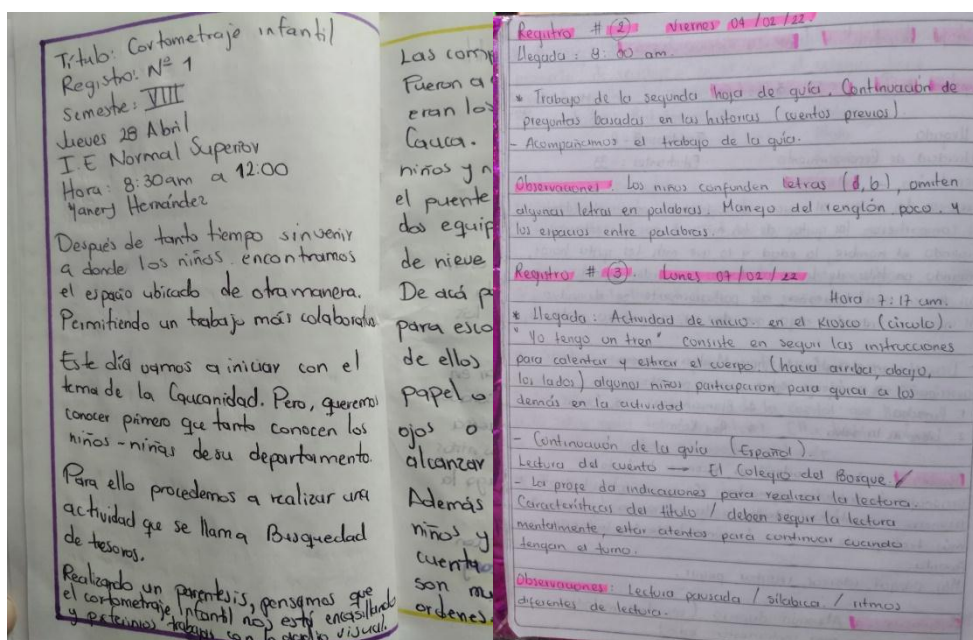 Título: Cortometraje infantil
Registro: Nº 1
Semestre: VIII
Jueves 28 Abril
I.E Normal Superior
Hora: 8:30am a 12:00
Yanery Hernández
Después de tanto tiempo sin venir
a donde los niños encontramos
el espacio ubicado de otra manera.
Permitiendo un trabajo más
Este día vamos a iniciar con el
tema de la Caucanidad. Pero, queremos
conocer primero que tanto conocen los
niños-niñas de su departamento.
Para ello procedemos a realizar una
actividad que se llama Busquedad
de tesoros.
Realizando un parentesis, pensamos que
el cortometraje Infantil nos está encasillando
y trabajar con lo visual.
Las comp
Fueron a
eran los
Cauca.
niños y n
el puente
dos equip
de nieve
De acá p
para esco
de ellos
papel o
ojos o
alcanzar
Además
niños y
cuenta
son mu
ordenes.
Registro # 2 Viernes 04/02/22.
Llegada: 8:00 am.
* Trabajo de la segunda hoja de guía. Continuación de
preguntas basadas en las historias (cuentos previos).
- Acompañamos el trabajo de la guía.
Observaciones: Los niños confunden letras (d,b), omiten
algunas letras en palabras. Manejo del renglón poco. y
los espacios entre palabras.
Registro # 3. Lunes 07/02/22
Hora 7:17 am.
* Llegada: Actividad de inicio en el Kiosco (circulo).
"Yo tengo un tren" consiste en seguir las instrucciones
para calentar y estirar el cuerpo. (hacia arriba, abajo,
los lados) algunos niños participaron para guiar a los
demás en la actividad
- Continuación de la guía (Español).
Lectura del cuento → El Colegio del Bosque. ✓
- La profe da indicaciones para realizar la lectura.
Características del título / deben seguir la lectura
mentalmente, estar atentos para continuar cuando
tengan el turno.
Observaciones: Lectura pausada / silabica / ritmos
diferentes de lectura.